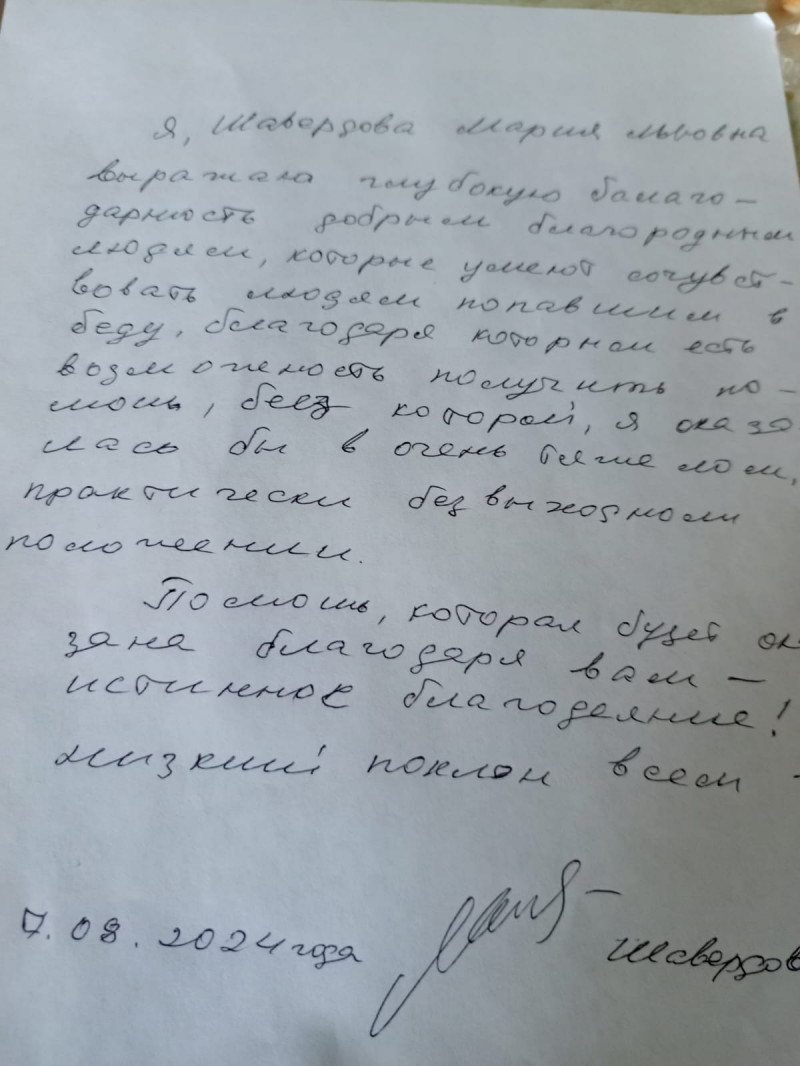 Я, Шавердова Мария Львовна
выражаю глубокую балаго-
дарность добрым благородным
людям, которые умеют сочувст-
вовать людям попавшим в
беду, благодаря которым есть
возможность получить по-
мощь, без которой, я оказа
лась бы в очень тяжелом,
практически безвыходном
положении.
Помощь, которая будет ока
зана благодаря вам —
истинное благодеяние!
Низкий поклон всем -
7.08.2024 года
Шавердов